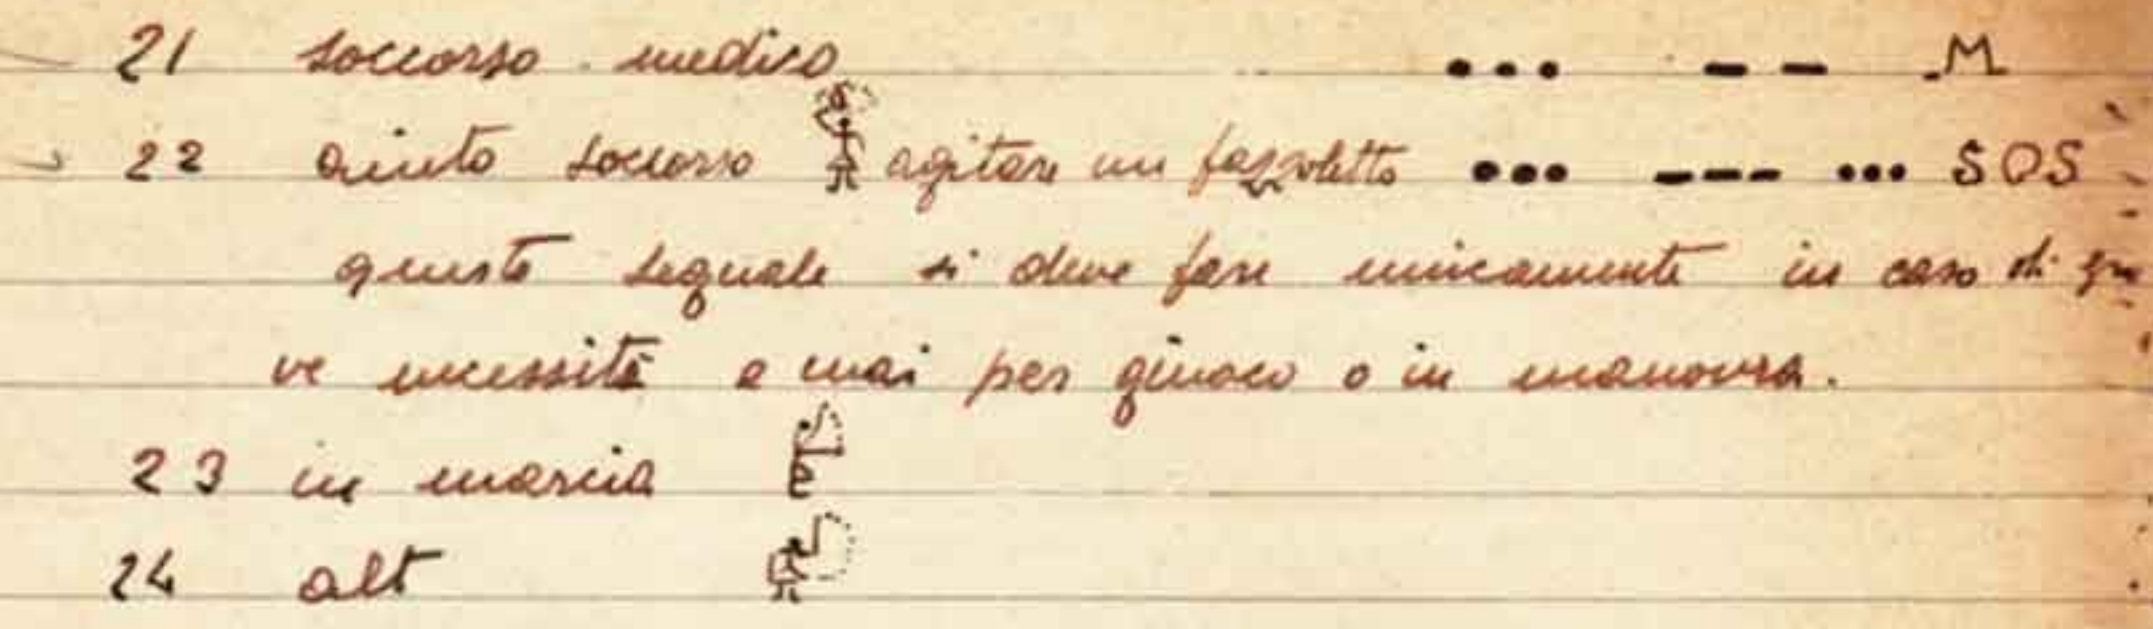 21 soccorso medico ••• — — M
22 aiuto soccorso agitare un fazzoletto ••• --- ••• SOS
questo segnale si deve fare unicamente in caso di gra
ve necessità e mai per giuoco o in manovra.
23 in marcia
24 alt